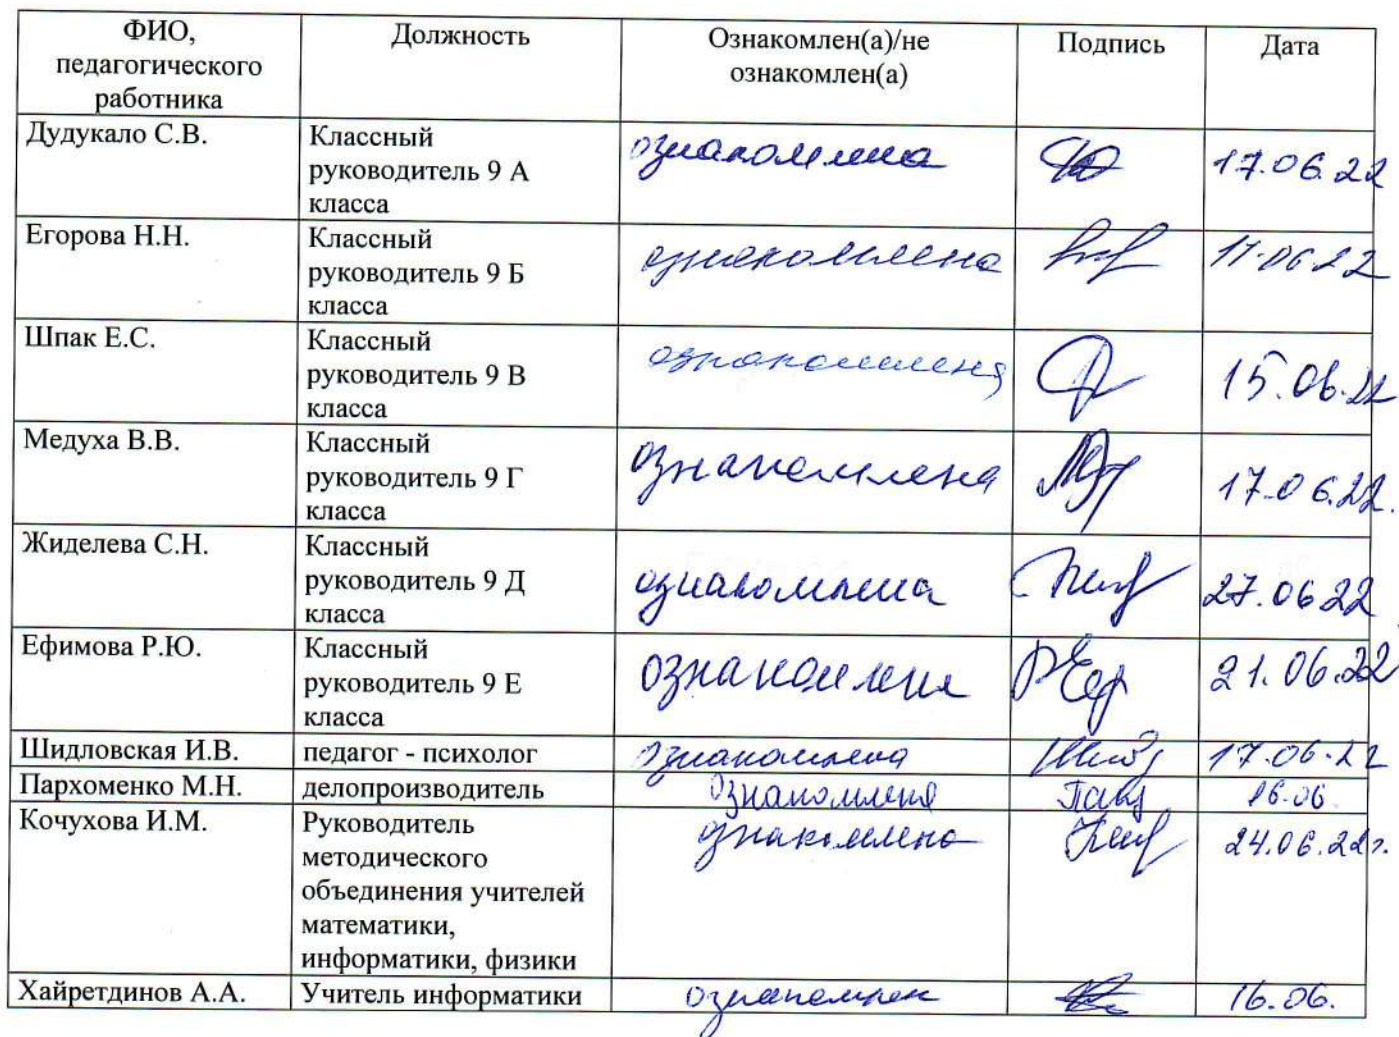 ФИО,
педагогического
работника
Должность
Ознакомлен(а)/не
ознакомлен(а)
Подпись
Дата
Дудукало С.В.
Классный
руководитель 9 А
класса
ознакомлена
17.06.22
Егорова Н.Н.
Классный
руководитель 9 Б
класса
ознакомлена
17.06.22
Шпак Е.С.
Классный
руководитель 9 В
класса
ознакомлена
15.06.22
Медуха В.В.
Классный
руководитель 9 Г
класса
ознакомлена
17.06.22.
Жиделева С.Н.
Классный
руководитель 9 Д
класса
ознакомлена
27.06.22
Ефимова Р.Ю.
Классный
руководитель 9 Е
класса
ознакомлена
21.06.22
Шидловская И.В.
педагог - психолог
ознакомлена
17.06.22
Пархоменко М.Н.
делопроизводитель
ознакомлена
16.06
Кочухова И.М.
Руководитель
методического
объединения учителей
математики,
информатики, физики
ознакомлена
24.06.22г.
Хайретдинов А.А.
Учитель информатики
ознакомлен
16.06.